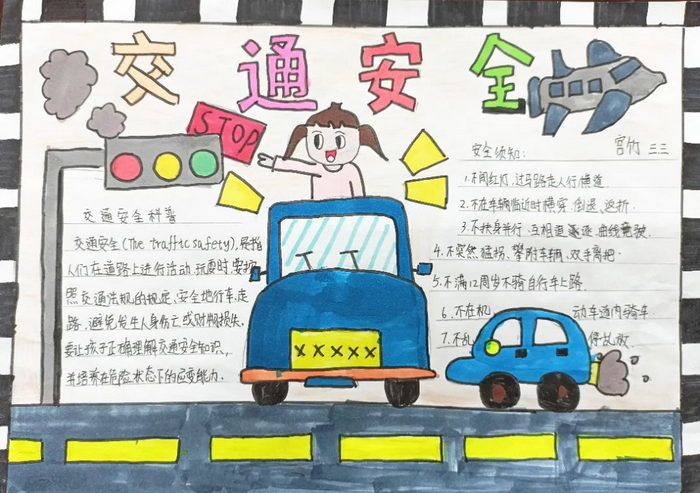 交通安全
STOP
交通安全科普
交通安全(The traffic safety),是指
人们在道路上进行活动、玩耍时,要按
照交通法规的规定,安全地行车、走
路,避免发生人身伤亡或财物损失。
要让孩子正确理解交通安全知识,
并培养在危险状态下的应变能力。
XXXXX
安全须知:
宫竹 三三
1.不闯红灯,过马路走人行横道.
2.不在车辆临近时横穿、倒退、返折.
3.不扶身并行、互相追逐、曲线
4.不突然猛拐、攀附车辆、双手离把.
5.不满12周岁不骑自行车上路.
6.不在机动车道内骑车
7.不乱停乱放.